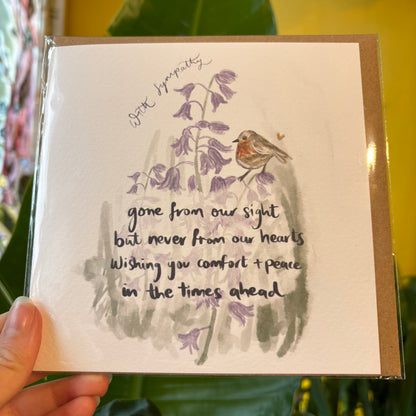 With Sympathy
gone from our sight
but never from our hearts
Wishing you comfort + peace
in the times ahead